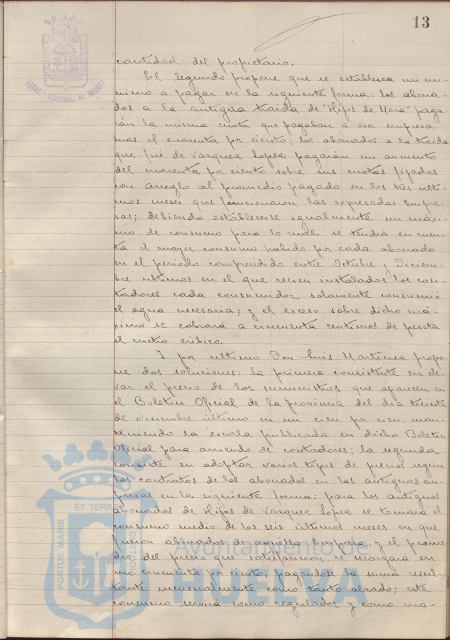 13
cantidad del propietario.
El segundo propone que se establezca un mí-
nimo a pagar en la siguiente forma: los abona-
dos a la antigua traida de "Hijos de Mora" paga-
rán la misma cuota que pagaban a esa empresa
mas el cuarenta por ciento; los abonados a la traida
que fué de Vazquez Lopez pagarán un aumento
del cuarenta por ciento sobre sus cuotas fijadas
con arreglo al promedio pagado en los tres últi-
mos meses que funcionaron las expresadas Empre-
sas; debiendo establecerse igualmente un máxi-
mo de consumo para lo cual se tendrá en cuen-
ta el mayor consumo habido por cada abonado
en el periodo comprendido entre Octubre y Diciem-
bre últimos en el que recien instalados los con-
tadores cada consumidor solamente consumió
el agua necesaria; y el exceso sobre dicho má-
ximo se cobrará a cincuenta centimos de peseta
el metro cúbico.
Y por último Don Luis Martinez propo-
ne dos soluciones: la primera consistente en ele-
var el precio de los suministros que aparecen en
el Boletin Oficial de la provincia del dia treinta
de diciembre último en un cien por cien, man-
teniendo la escala publicada en dicho Boletin
Oficial para arriendo de contadores; la segunda
consiste en adoptar varios tipos de precios segun
los contratos de los abonados en las antiguas em-
presas en la siguiente forma: para los antiguos
abonados de Hijos de Vazquez Lopez se tomará el
consumo medio de los seis últimos meses en que
fueron abonados de aquella Empresa y el prome-
dio del precio que satisfacian, se recargará en
un cincuenta por ciento, pagandose la suma resul-
tante mensualmente como tanto alzado; este
consumo servirá como regulador y como ma-
PORTUS MARIS ET TERRAE
Ayuntamiento de
HUELVA